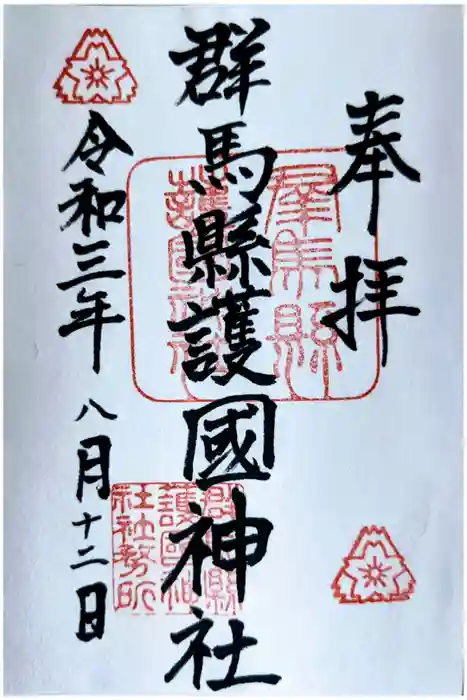 奉拝
群馬縣護國神社
令和三年八月十二日
群馬縣
護國神社
群馬縣
護國神
社社務所